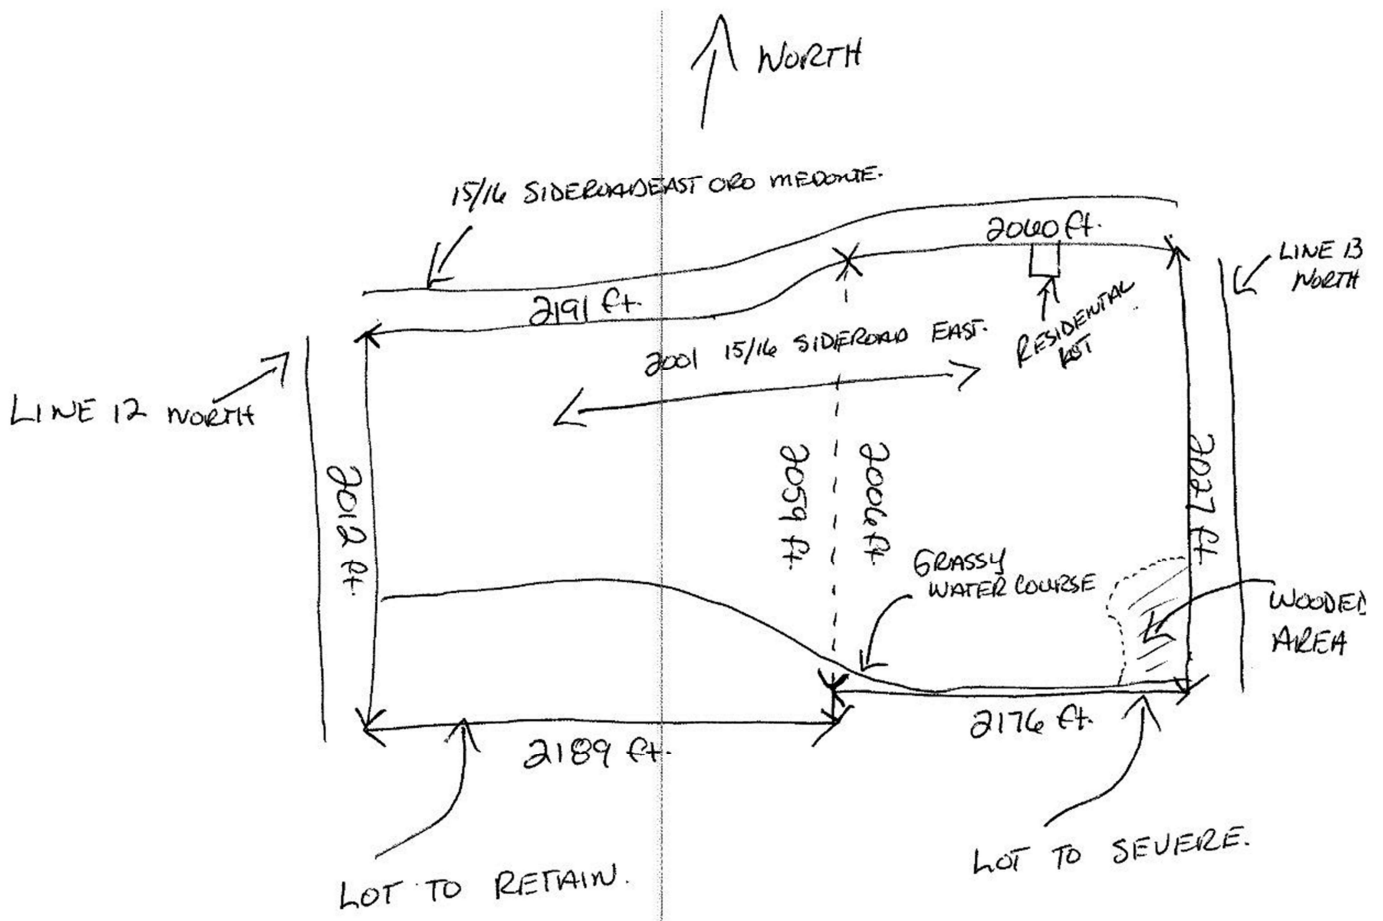 NORTH
15/16 SIDEROADEAST ORO MEDONTE.
2060 ft.
LINE 13
NORTH
2191 ft.
RESIDENTIAL
LOT
2001 15/16 SIDEROAD EAST.
LINE 12 NORTH
2012 ft.
2059 ft.
2006 ft.
2027 ft.
GRASSY
WATER COURSE
WOODED
AREA
2189 ft.
2176 ft.
LOT TO RETAIN.
LOT TO SEVERE.